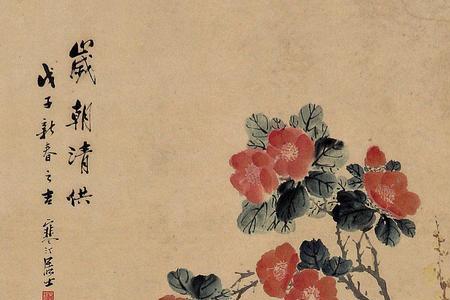 歲朝清供
戊子新春之吉 寒汀居士